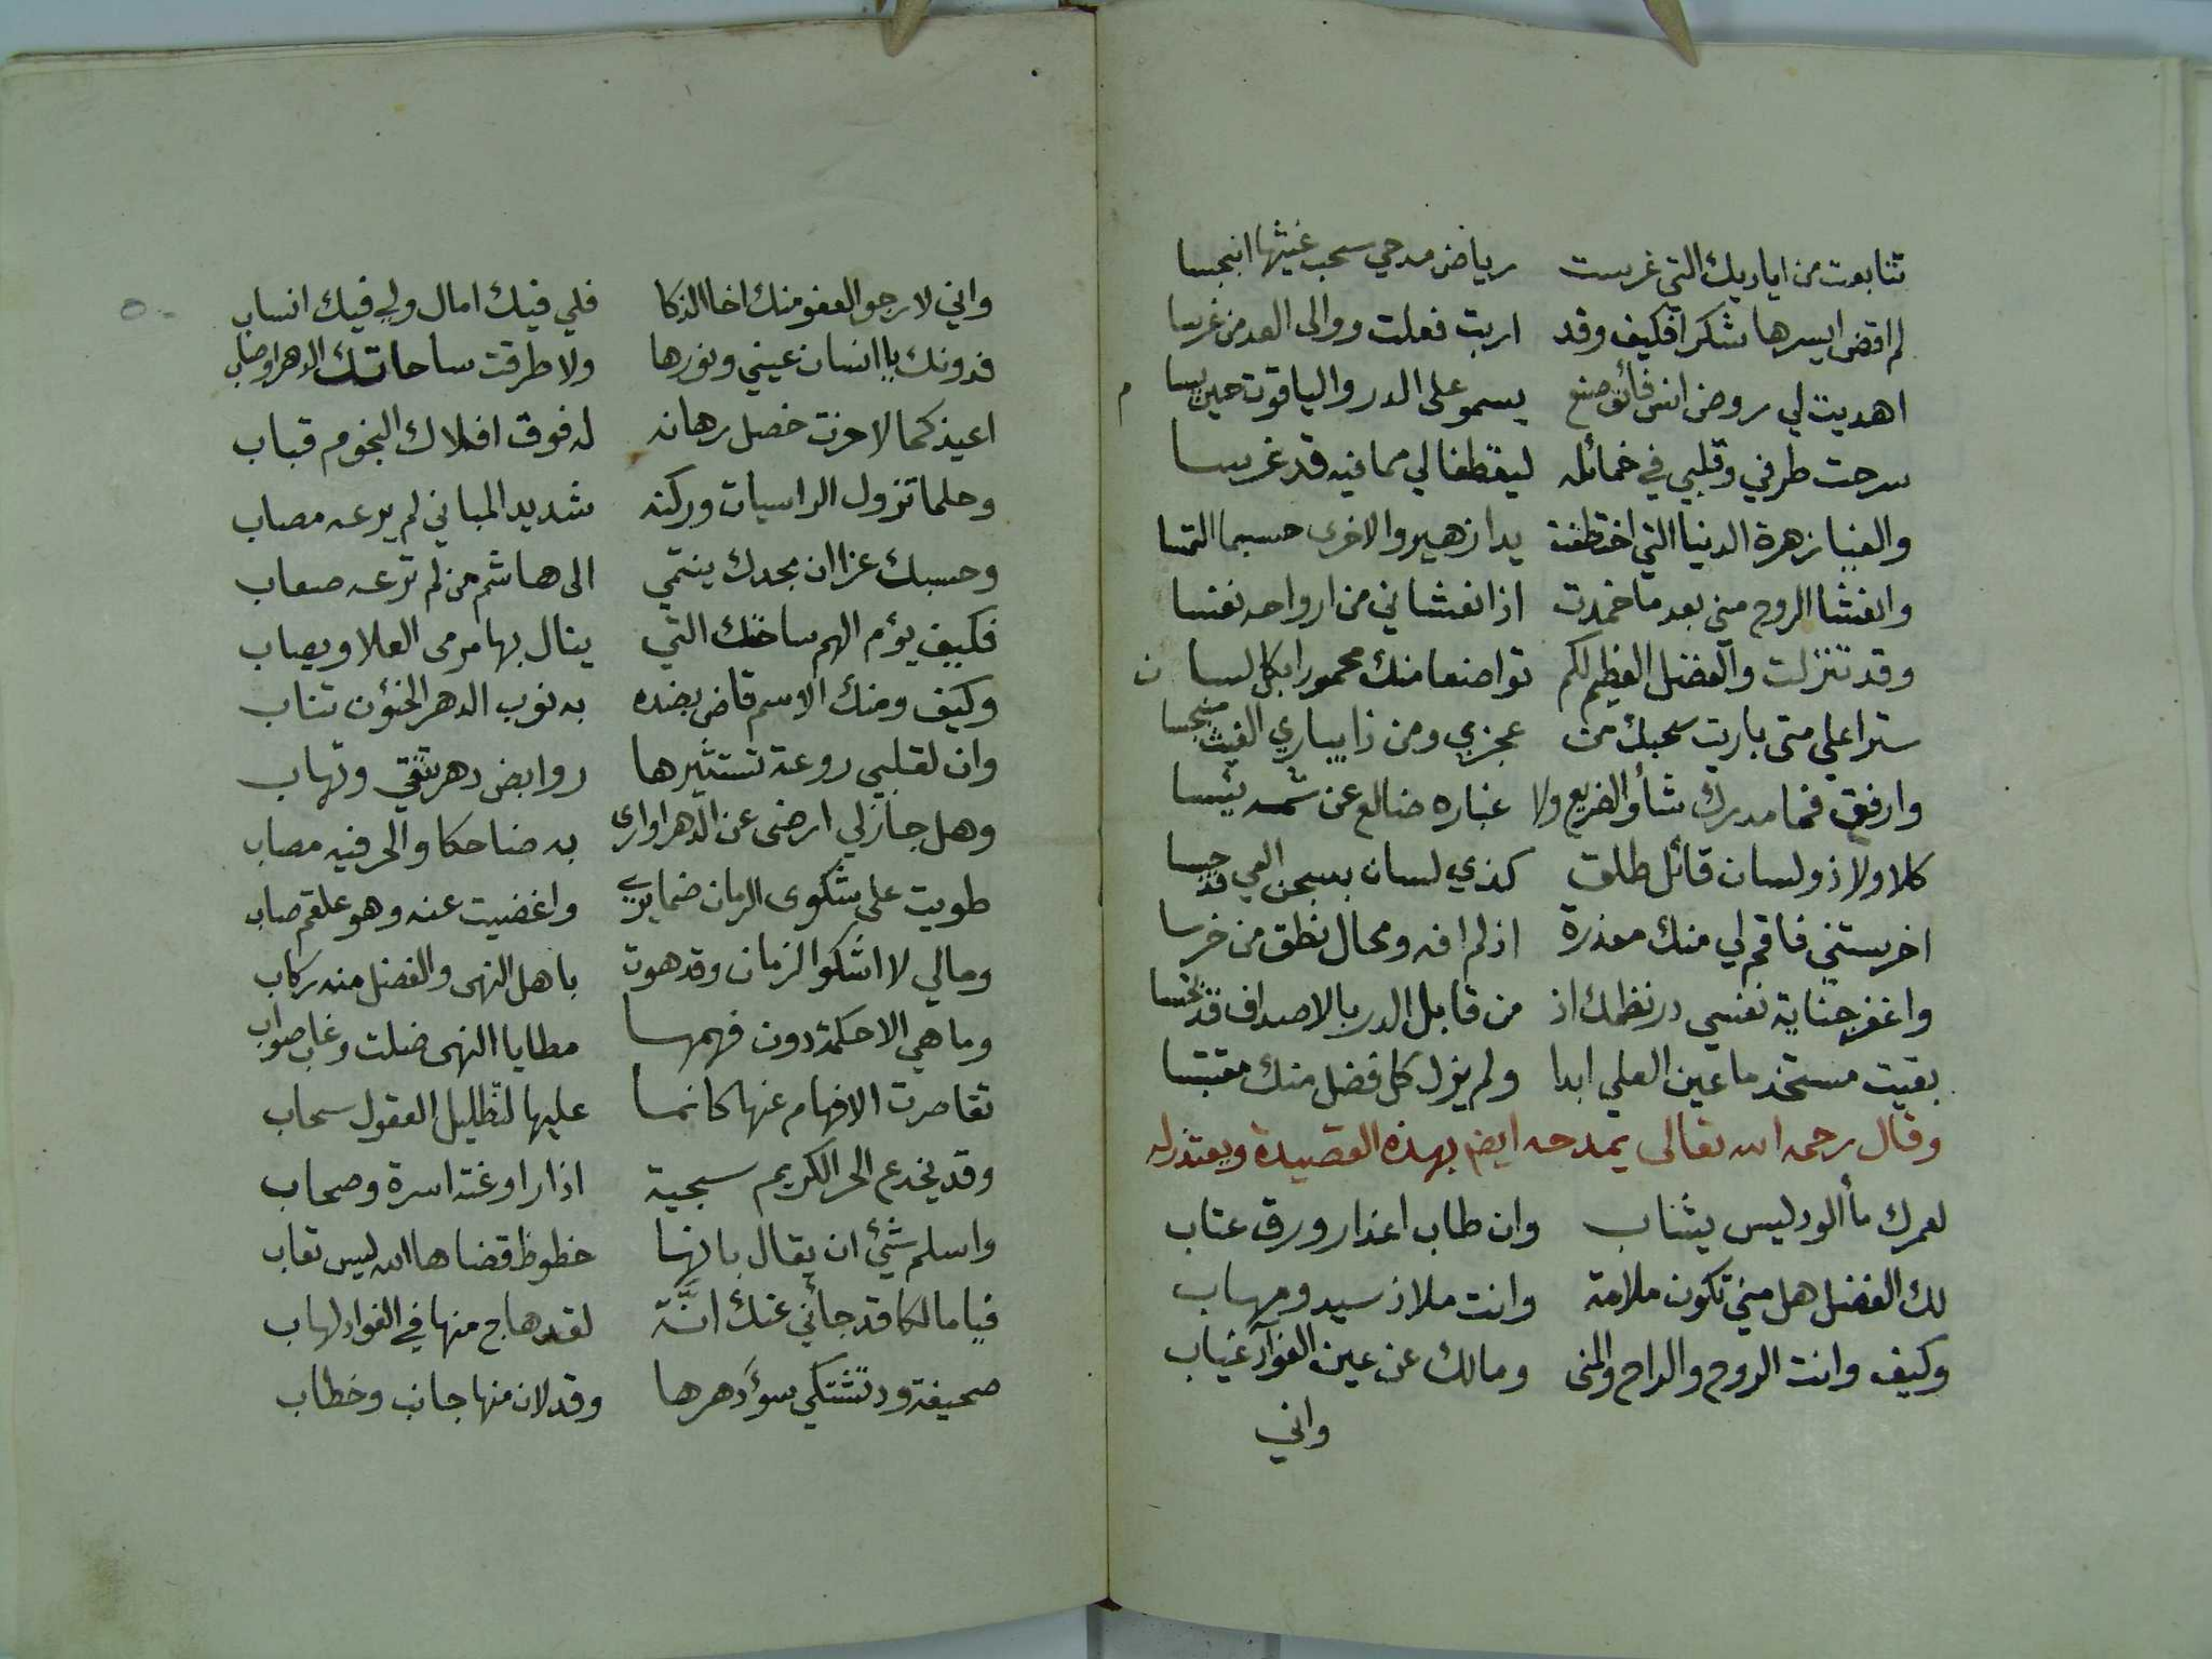 تتابعت من اياديك التي غرست رياض مدحي سحب غيثها انبجسا
لم اقض ايسرها شكرا فكيف وقد اربت فعلت ووالى العد من غرسا
اهديت لي روض انس فائق صنع يسمو على الدر والياقوت حين يسا م
سرحت طرفي وقلبي في خمائله ليقطفا لي مما فيه قد غرسا
والفيا زهرة الدنيا التي اختطفت يدا زهير والاخرى حسبما التمسا
وانفثا الروح مني بعد ما خمدت اذا نفثاني من ارواحه نفسا
وقد تنزلت والفضل العظيم لكم تواضعا منك محمورا بكل لسا ن
سترا علي متى باريت سحبك من عجزي ومن ذا يباري الغيث منبجسا
وارفق فما مدرك شأو الضريع ولا غباره ضالع عن شمه يئسا
كلا ولا ذو لسان قائل طلق كذي لسان بسجن العي قد حبسا
اخرستني فاقم لي منك معذرة اذ لم افه ومحال نطق من خرسا
واغفر جناية نفسي در نظمك اذ من قابل الدر بالاصداف قد بخسا
بقيت مستخدما عين العلي ابدا ولم يزل كل فضل منك مقتبسا
وقال رحمه الله تعالى يمدحه ايضم بهذه القصيدة ويعتذر له
لعمرك ما الود ليس يشاب وان طاب اعذار ورق عتاب
لك الفضل هل مني تكون ملامة وانت ملاذ سيد ومهاب
وكيف وانت الروح والراح والمنى ومالك عن عين الفوآد غياب
واني
واني لارجو العفو منك اخا الذكا فلي فيك امال ولي فيك انساب
فدونك يا انسان عيني ونورها ولا طرقت ساحاتك الدهر اوصاب
اعيذ كمالا حزت خصل رهانه له فوق افلاك النجوم قباب
وحلما تزول الراسيات وركنه شديد المباني لم يرعه مصاب
وحسبك عزا ان مجدك ينتمي الى هاشم من لم ترعه صعاب
فكيف يؤم الهم ساحتك التي ينال بها مرمى العلا ويصاب
وكيف ومنك الاسم قاض بضده به نوب الدهر الخئون تناب
وان لقلبي روعة تستثيرها روابض دهر تتقي وتهاب
وهل جاز لي ارضى عن الدهر او ارى به ضاحكا والحر فيه مصاب
طويت على شكوى الزمان ضمايري واغضيت عنه وهو علقم صاب
ومالي لا اشكو الزمان وقد هوت باهل النهى والفضل منه ركاب
وما هي الا حكمة دون فهمها مطايا النهى ضلت وغاب صواب
تقاصرت الافهام عنها كانما عليها لتظليل العقول سحاب
وقد يخدع الحر الكريم سجية اذا راوغته اسرة وصحاب
واسلم شيئ ان يقال بانها حظوظ قضاها الله ليس تعاب
فيا مالكا قد جائني عنك انَّة لقد هاج منها في الفواد لهاب
صحيفة ود تشتكي سوء دهرها وقد لان منها جانب وخطاب